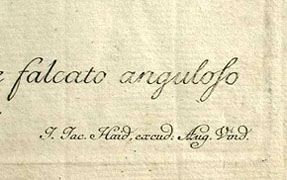 e falcato anguloſo
J. Jac. Haid, excud. Aug. Vind.